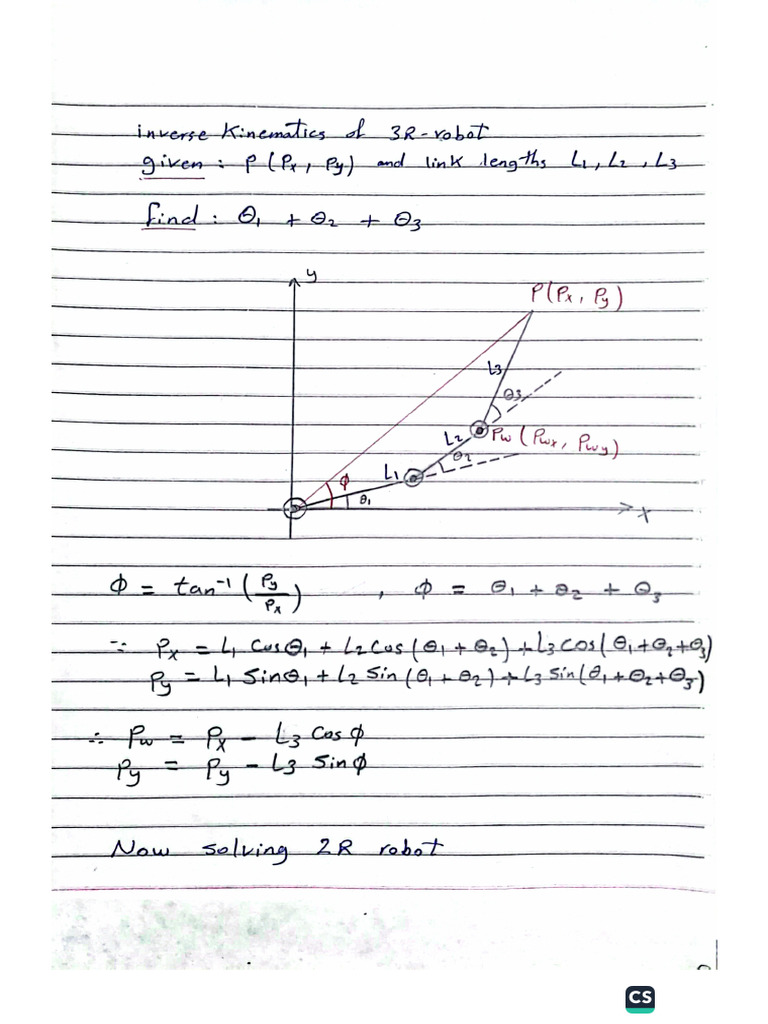 inverse Kinematics of 3R-robot
given : P (Px , Py) and link lengths L1, L2 , L3
find : θ1 + θ2 + θ3
y
P(Px , Py)
L3
θ3
L2
Pw (Pwx , Pwy)
θ2
L1
ϕ
θ1
x
ϕ = tan⁻¹ (Py/Px) , ϕ = θ1 + θ2 + θ3
∵ Px = L1 Cosθ1 + L2 Cos (θ1 + θ2) + L3 Cos (θ1+θ2+θ3)
Py = L1 Sinθ1 + L2 Sin (θ1 + θ2) + L3 Sin (θ1+θ2+θ3)
∴ Pw = Px − L3 Cos ϕ
Py = Py − L3 Sin ϕ
Now solving 2R robot
CS